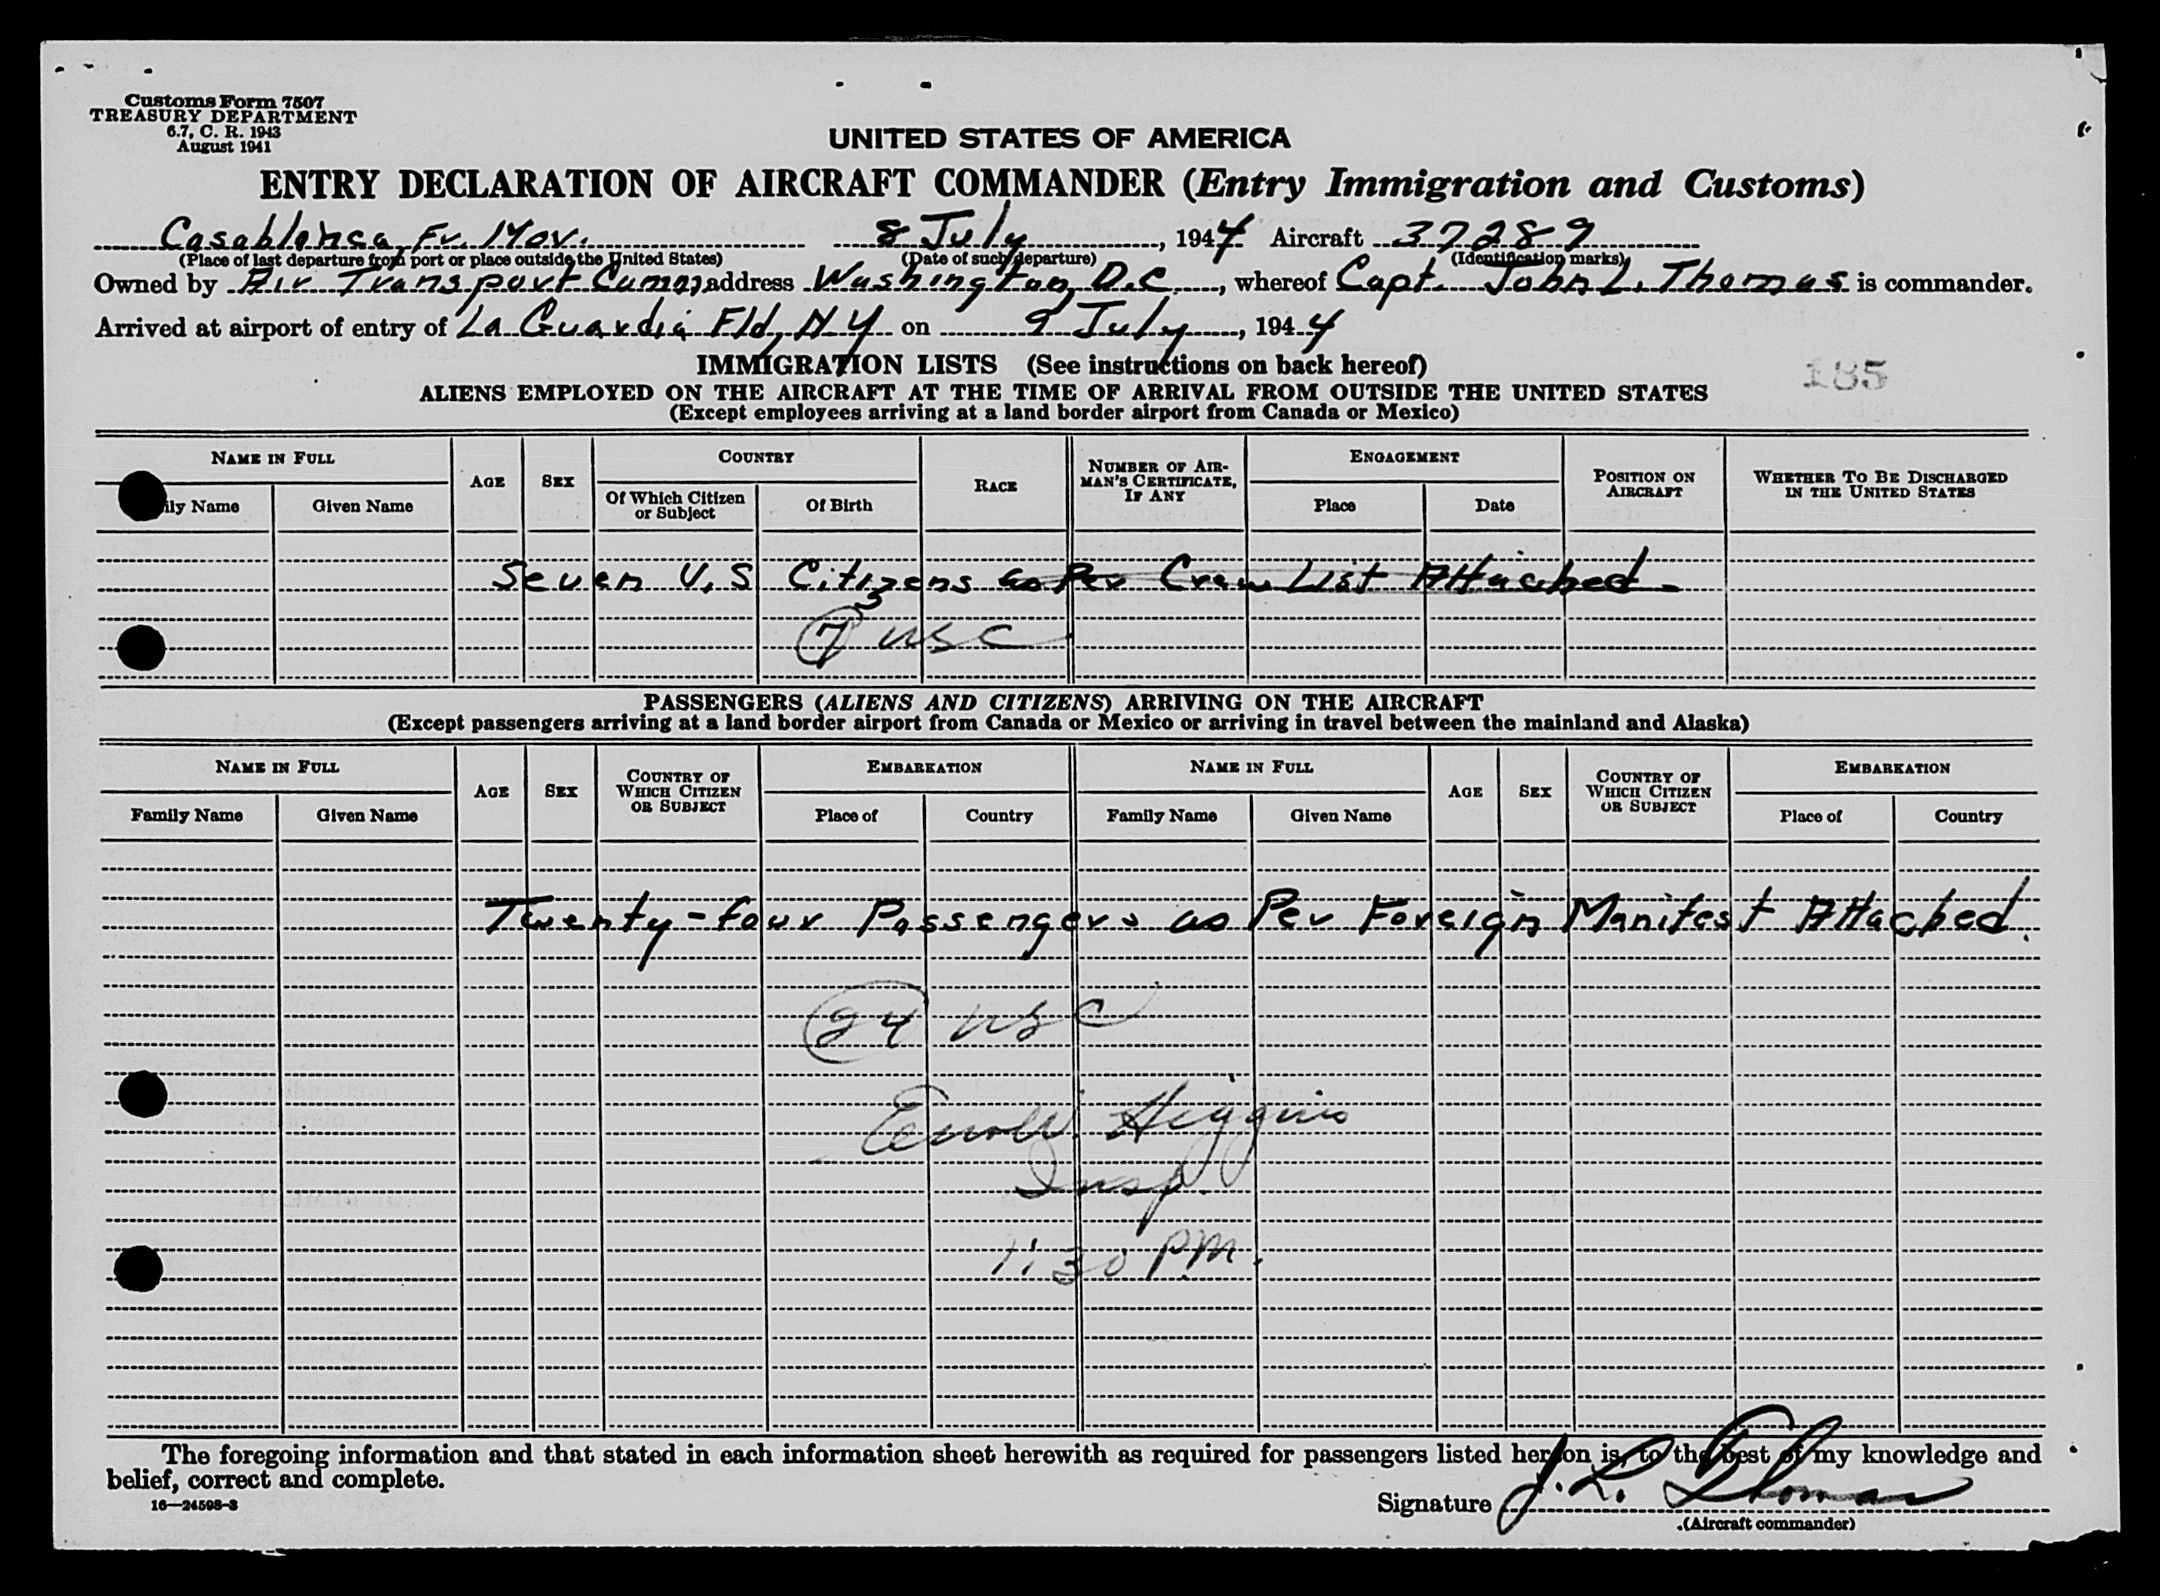 Customs Form 7507
TREASURY DEPARTMENT
6.7, C. R. 1943
August 1941
UNITED STATES OF AMERICA
ENTRY DECLARATION OF AIRCRAFT COMMANDER (Entry Immigration and Customs)
Casablanca, Fr. Mor. 8 July, 1944 Aircraft 37289
(Place of last departure from port or place outside the United States) (Date of such departure) (Identification marks)
Owned by Air Transport Comm, address Washington D.C., whereof Capt. John L. Thomas is commander.
Arrived at airport of entry of La Guardia Fld, N Y on 9 July, 1944
IMMIGRATION LISTS (See instructions on back hereof)
185
ALIENS EMPLOYED ON THE AIRCRAFT AT THE TIME OF ARRIVAL FROM OUTSIDE THE UNITED STATES
(Except employees arriving at a land border airport from Canada or Mexico)
NAME IN FULL AGE SEX COUNTRY RACE NUMBER OF AIRMAN'S CERTIFICATE, IF ANY ENGAGEMENT POSITION ON AIRCRAFT WHETHER TO BE DISCHARGED IN THE UNITED STATES
ily Name Given Name Of Which Citizen or Subject Of Birth Place Date
Seven U.S Citizens as Per Crew List Attached
7 USC
PASSENGERS (ALIENS AND CITIZENS) ARRIVING ON THE AIRCRAFT
(Except passengers arriving at a land border airport from Canada or Mexico or arriving in travel between the mainland and Alaska)
NAME IN FULL AGE SEX COUNTRY OF WHICH CITIZEN OR SUBJECT EMBARKATION NAME IN FULL AGE SEX COUNTRY OF WHICH CITIZEN OR SUBJECT EMBARKATION
Family Name Given Name Place of Country Family Name Given Name Place of Country
Twenty-four Passengers as Per Foreign Manifest Attached.
24 USC
Higgins
Insp.
11:30 P.M.
The foregoing information and that stated in each information sheet herewith as required for passengers listed hereon is, to the best of my knowledge and
belief, correct and complete.
16—24598-3
Signature J. L. Thomas
(Aircraft commander)